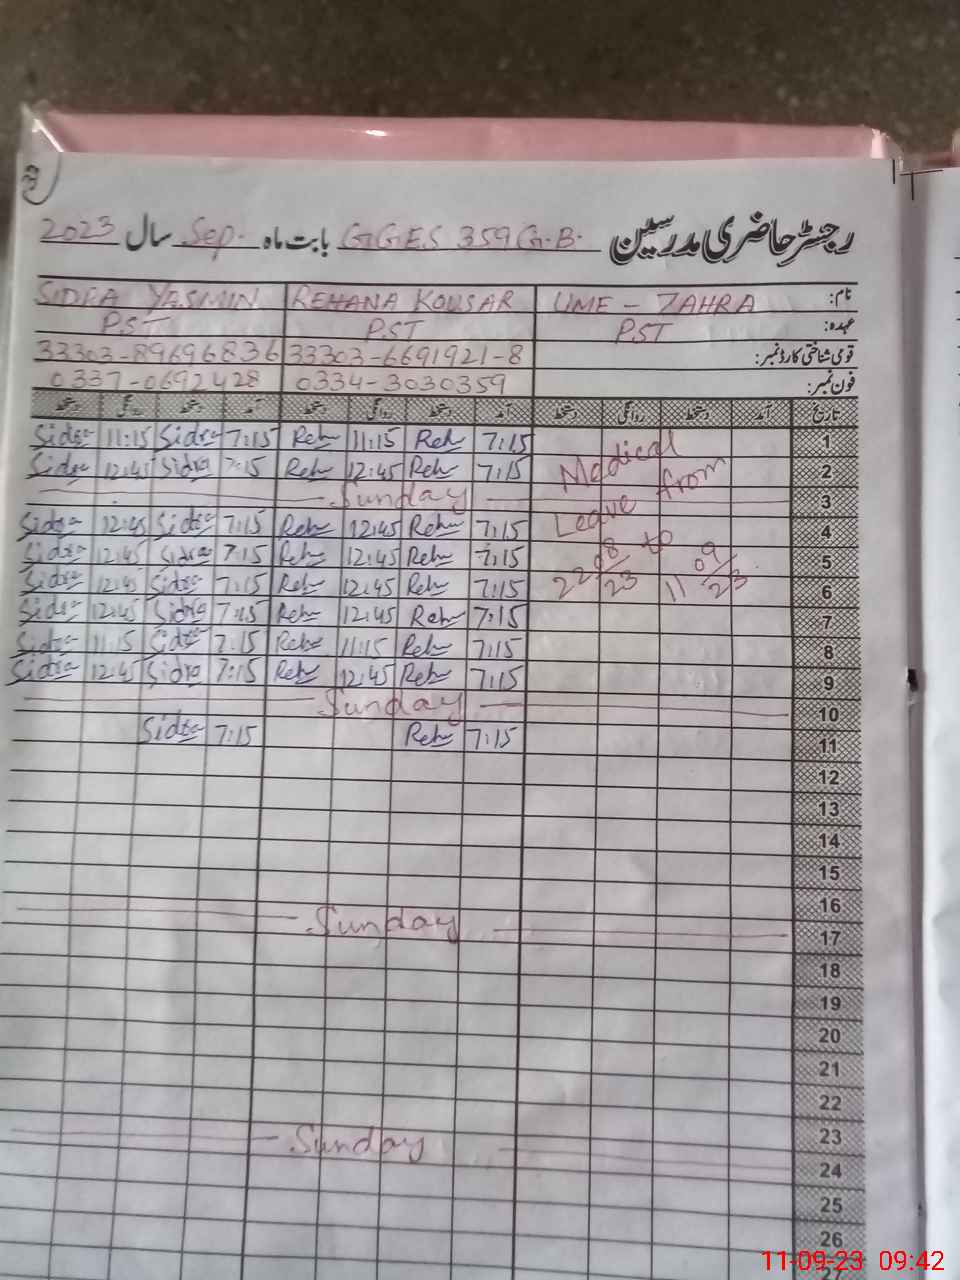 33
رجسٹر حاضری مدرسین G.G.E.S 359 G.B. بابت ماہ Sep. سال 2023
نام: UME - ZAHRA REHANA KOUSAR SIDRA YASMIN
عہدہ: P.ST P.ST P.ST
قومی شناختی کارڈ نمبر: 33303-6691921-8 33303-89696836
فون نمبر: 0334-3030359 0337-0692428
تاریخ آمد دستخط روانگی دستخط آمد دستخط روانگی دستخط آمد دستخط روانگی دستخط
1 Medical 7:15 Reh 11:15 Reh 7:15 Sidra 11:15 Sidra
2 Leave from 7:15 Reh 12:45 Reh 7:15 Sidra 12:45 Sidra
3 Sunday
4 22/08/23 to 11/09/23 7:15 Reh 12:45 Reh 7:15 Sidra 12:45 Sidra
5 7:15 Reh 12:45 Reh 7:15 Sidra 12:45 Sidra
6 7:15 Reh 12:45 Reh 7:15 Sidra 12:45 Sidra
7 7:15 Reh 12:45 Reh 7:15 Sidra 12:45 Sidra
8 7:15 Reh 11:15 Reh 7:15 Sidra 11:15 Sidra
9 7:15 Reh 12:45 Reh 7:15 Sidra 12:45 Sidra
10 Sunday
11 7:15 Reh 7:15 Sidra
12
13
14
15
16
17 Sunday
18
19
20
21
22
23
24 Sunday
25
26
27
11-09-23 09:42